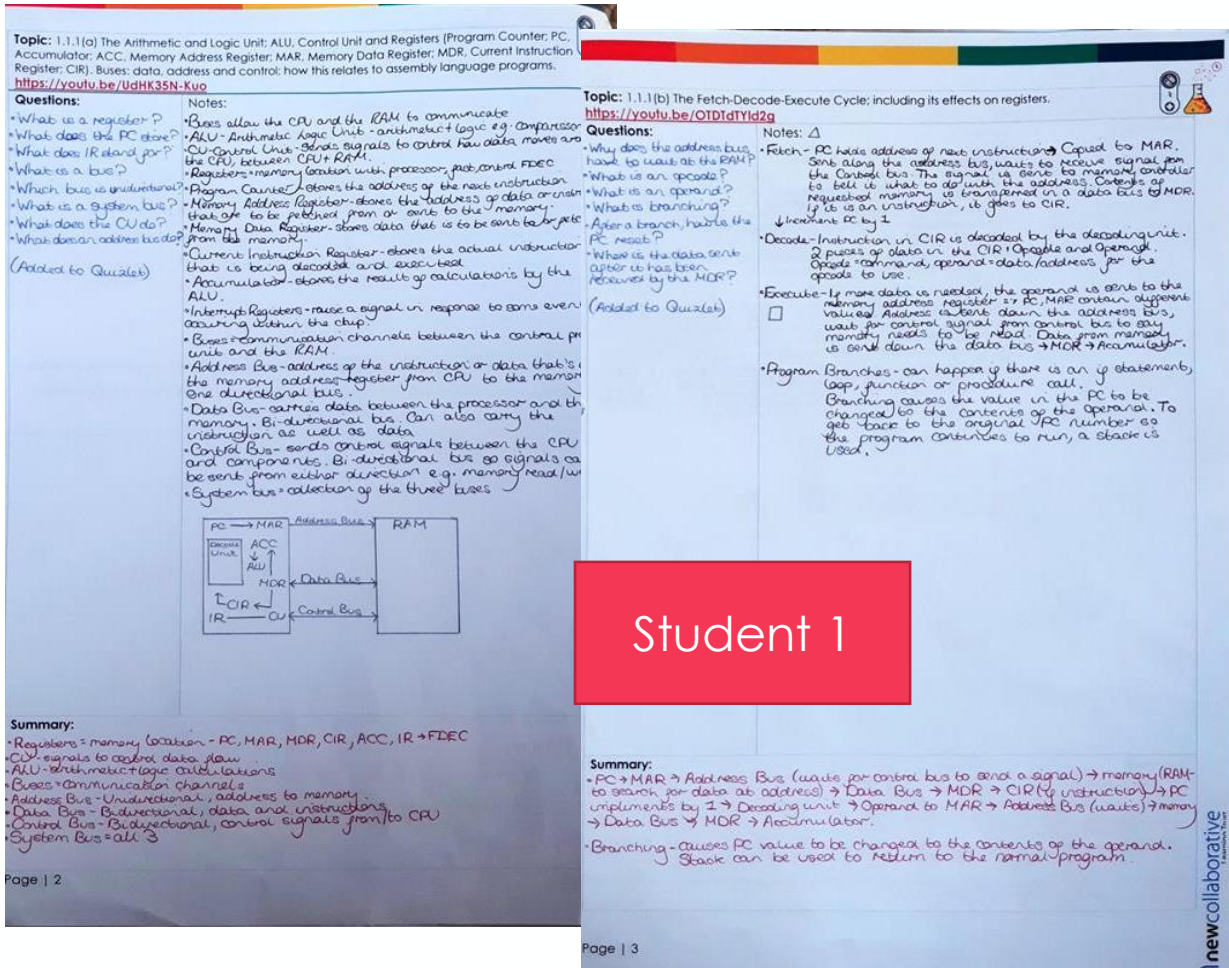 Topic: 1.1.1(a) The Arithmetic and Logic Unit; ALU, Control Unit and Registers (Program Counter; PC,
Accumulator; ACC, Memory Address Register; MAR, Memory Data Register; MDR, Current Instruction
Register; CIR). Buses: data, address and control: how this relates to assembly language programs.
https://youtu.be/UdHK35N-Kuo
Questions:
•What is a register?
•What does the PC store?
•What does IR stand for?
•What is a bus?
•Which bus is unidirectional?
•What is a system bus?
•What does the CU do?
•What does an address bus do?
(Added to Quizlet)
Notes:
•Buses allow the CPU and the RAM to communicate
•ALU-Arithmetic Logic Unit-arithmetic+logic eg. comparisson
•CU-Control Unit-sends signals to control how data moves aro
the CPU, between CPU+RAM.
•Registers=memory location with processor, fast, control FDEC
•Program Counter-stores the address of the next instruction
•Memory Address Register-stores the address of data or instr
that are to be fetched from or sent to the memory.
•Memory Data Register-stores data that is to be sent to or fetc
from the memory.
•Current Instruction Register-stores the actual instruction
that is being decoded and executed
•Accumulator-stores the result of calculations by the
ALU.
•Interrupt Registers-raise a signal in response to some even
occuring within the chip.
•Buses=communication channels between the central pr
unit and the RAM.
•Address Bus-address of the instruction or data that's
the memory address register from CPU to the memor
One directional bus.
•Data Bus-carries data between the processor and th
memory. Bi-directional bus. Can also carry the
instruction as well as data
•Control Bus-sends control signals between the CPU
and components. Bi-directional bus so signals ca
be sent from either direction e.g. memory read/w
•System bus=collection of the three buses
PC → MAR Address Bus RAM
Decode Unit ACC
ALU
MDR Data Bus
CIR
IR CU Control Bus
Summary:
•Registers=memory location-PC, MAR, MDR, CIR, ACC, IR→FDEC
•CU-signals to control data flow
•ALU-arithmetic+logic calculations
•Buses=communication channels
•Address Bus-Unidirectional, address to memory.
•Data Bus-Bidirectional, data and instructions
•Control Bus-Bidirectional, control signals from/to CPU
•System Bus=all 3
Page | 2
Topic: 1.1.1(b) The Fetch-Decode-Execute Cycle; including its effects on registers.
https://youtu.be/OTDTdTYld2g
Questions:
•Why does the address bus
have to wait at the RAM?
•What is an opcode?
•What is an operand?
•What is branching?
•After a branch, how is the
PC reset?
•Where is the data sent
after it has been
received by the MDR?
(Added to Quizlet)
Notes: △
•Fetch-PC holds address of next instruction→ Copied to MAR.
Sent along the address bus, waits to receive signal from
the Control bus. The signal is sent to memory controller
to tell it what to do with the address. Contents of
requested memory is transferred in a data bus to MDR.
If it is an instruction, it goes to CIR.
↓Increment PC by 1
•Decode-Instruction in CIR is decoded by the decoding unit.
2 pieces of data in the CIR: Opcode and Operand.
Opcode=command, operand=data/address for the
opcode to use.
•Execute-If more data is needed, the operand is sent to the
memory address register => PC, MAR contain different
values. Address is sent down the address bus,
wait for control signal from control bus to say
memory needs to be read. Data from memory
is sent down the data bus →MDR→Accumulator.
•Program Branches-can happen if there is an if statement,
loop, function or procedure call.
Branching causes the value in the PC to be
changed to the contents of the operand. To
get back to the original PC number so
the program continues to run, a stack is
used.
Student 1
Summary:
•PC→MAR→Address Bus (waits for control bus to send a signal)→memory(RAM-
to search for data at address)→Data Bus→MDR→CIR(if instruction)→PC
impliments by 1→Decoding unit→Operand to MAR→Address Bus (waits)→memory
→Data Bus→MDR→Accumulator.
•Branching-causes PC value to be changed to the contents of the operand.
Stack can be used to return to the normal program.
Page | 3
newcollaborative